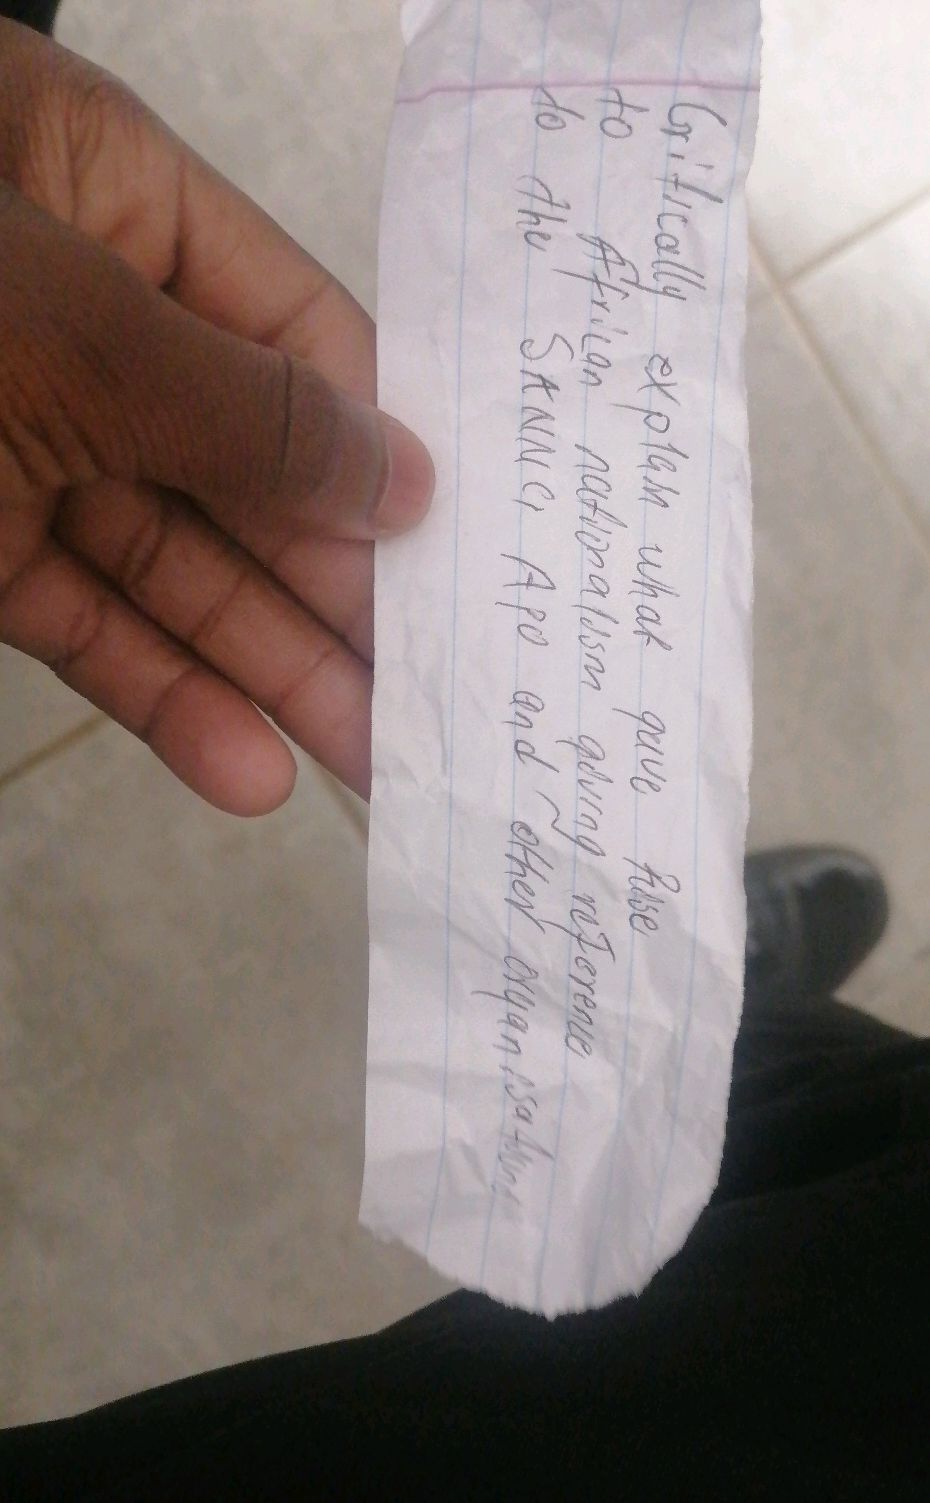 Critically explain what gave Rise
to African nationalism giving reference
to the SANNC, APO and other organisations